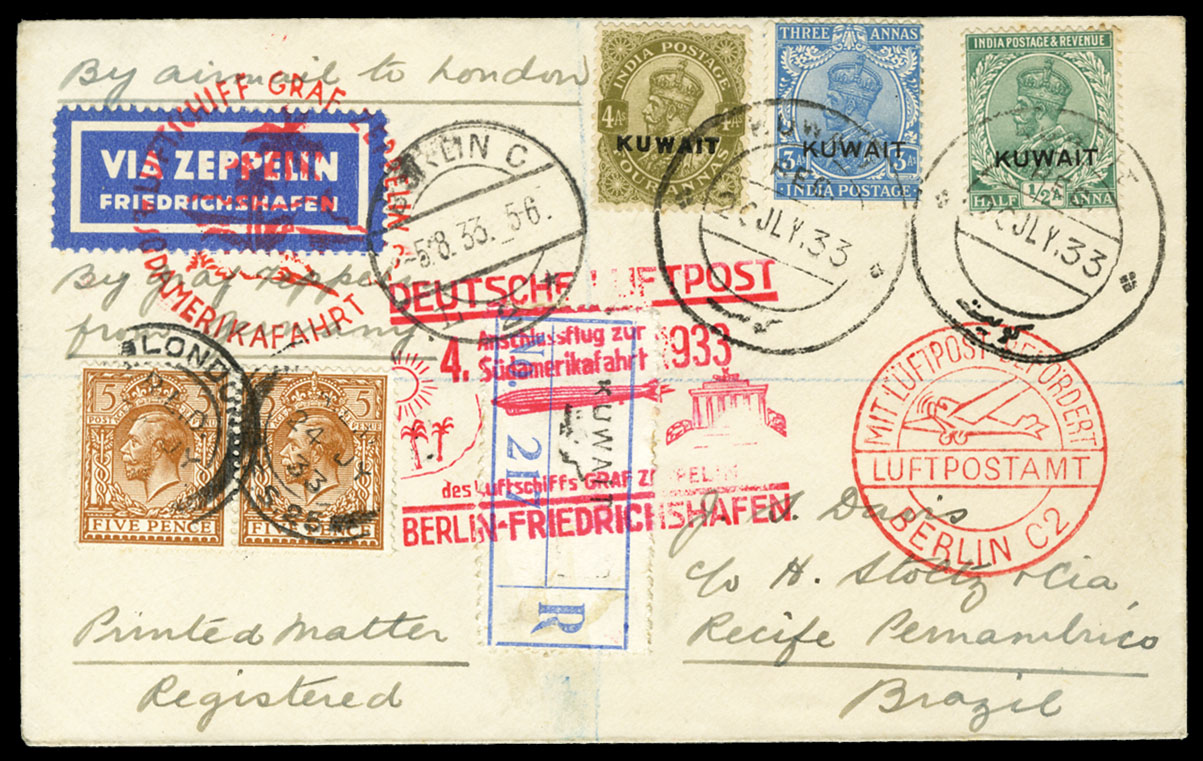 By airmail to London
VIA ZEPPELIN
FRIEDRICHSHAFEN
LUFTSCHIFF GRAF ZEPPELIN
SÜDAMERIKAFAHRT
By graf Zeppelin
from Germany
BERLIN C
-5.8.33. 5-6.
INDIA POSTAGE
4As 4As
KUWAIT
FOUR ANNAS
THREE ANNAS
3As KUWAIT 3As
INDIA POSTAGE
INDIA POSTAGE & REVENUE
KUWAIT
HALF 1/2A ANNA
KUWAIT
JLY.33
كويت
KUWAIT
JLY.33
كويت
DEUTSCHE LUFTPOST
4. Anschlussflug zur
Südamerikafahrt 1933
des Luftschiffs GRAF ZEPPELIN
BERLIN-FRIEDRICHSHAFEN
No. 217
KUWAIT
R
LONDON
5 5
FIVE PENCE
LONDON
24 JY
33
5 5
FIVE PENCE
MIT LUFTPOST BEFÖRDERT
LUFTPOSTAMT
BERLIN C2
J. S. Davis
c/o H. Stoltz & Cia,
Recife Pernambuco
Brazil
Printed Matter
Registered